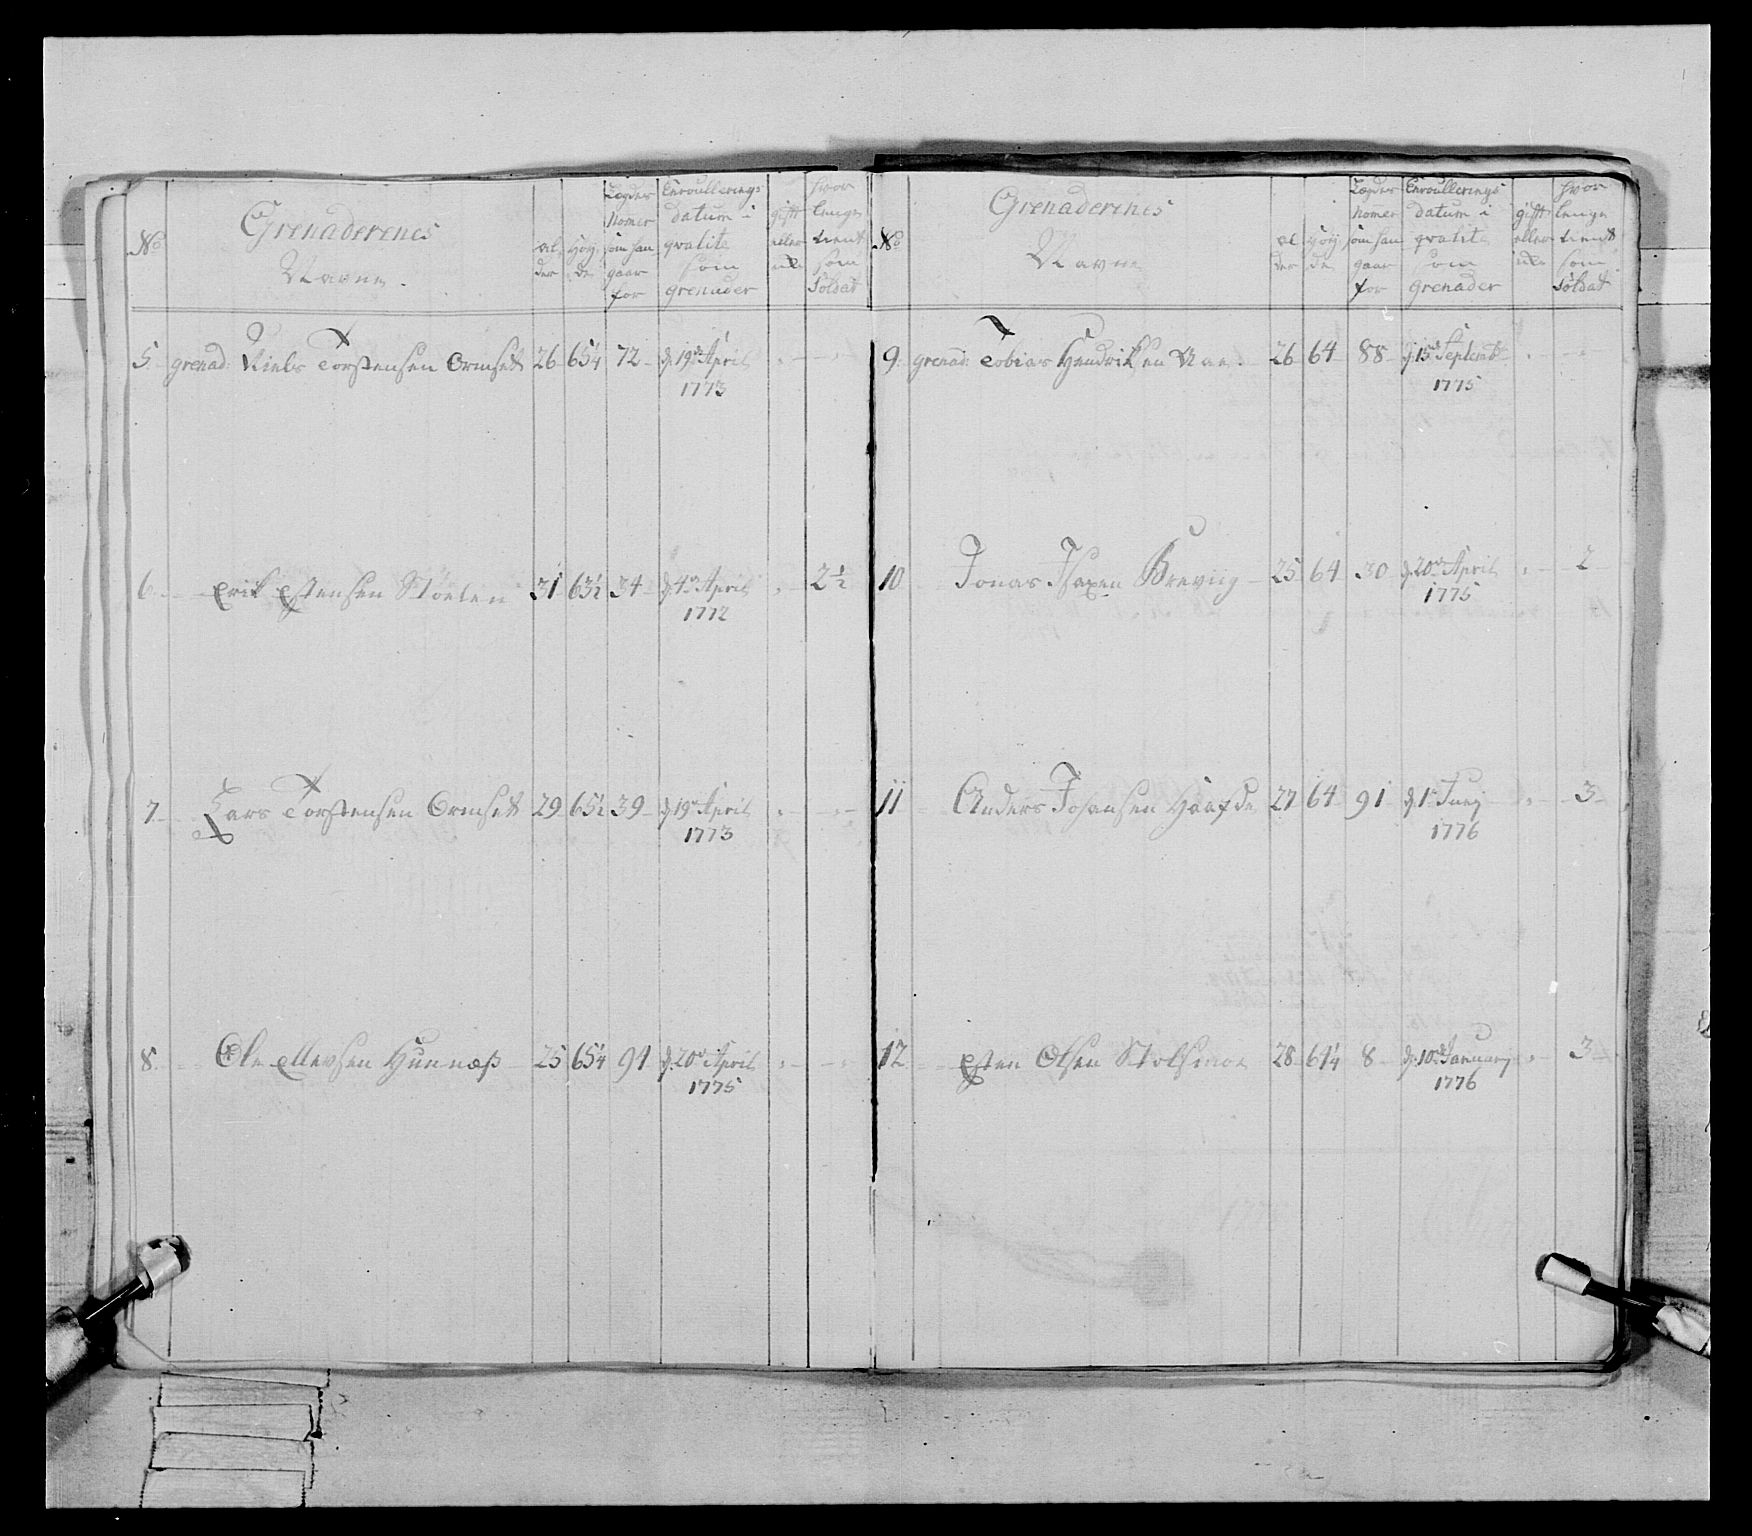 No
Grenaderenes
Navne.
al
der
Høy
de
Lægder
Nomer
som han
gaar
for
Enroullerings
datum i
qvalite
som
grenader
gift
eller
hvor
lenge
tient
som
Soldat
5 grenad: Niels Torstensen Ormsett 26 65¼ 72 d. 19de April
1773
6 Erik Estensen Stöelen 31 63½ 34 d. 4de April 2½
1772
7 Lars Torstensen Ormsett 29 65½ 39 d. 19de April
1773
8 Ole Ellevsen Hunnæss 25 65¼ 91 d. 20de April
1775
No
Grenaderenes
Navne
al
der
Høy
de
Lægder
Nomer
som han
gaar
for
Enroullerings
datum i
qvalite
som
grenader
gift
eller
hvor
lenge
tient
som
Soldat
9 grenad: Tobias Hendriksen 26 64 88 d. 15de Septembr
1775
10 Jonas Isaxen Breviig 25 64 30 d. 20de April 2
1775
11 Anders Johansen 27 64 91 d. 1te Junj 3
1776
12 Esten Olsen Stolsmoe 28 64¼ 8 d. 10de Januarj 3
1776